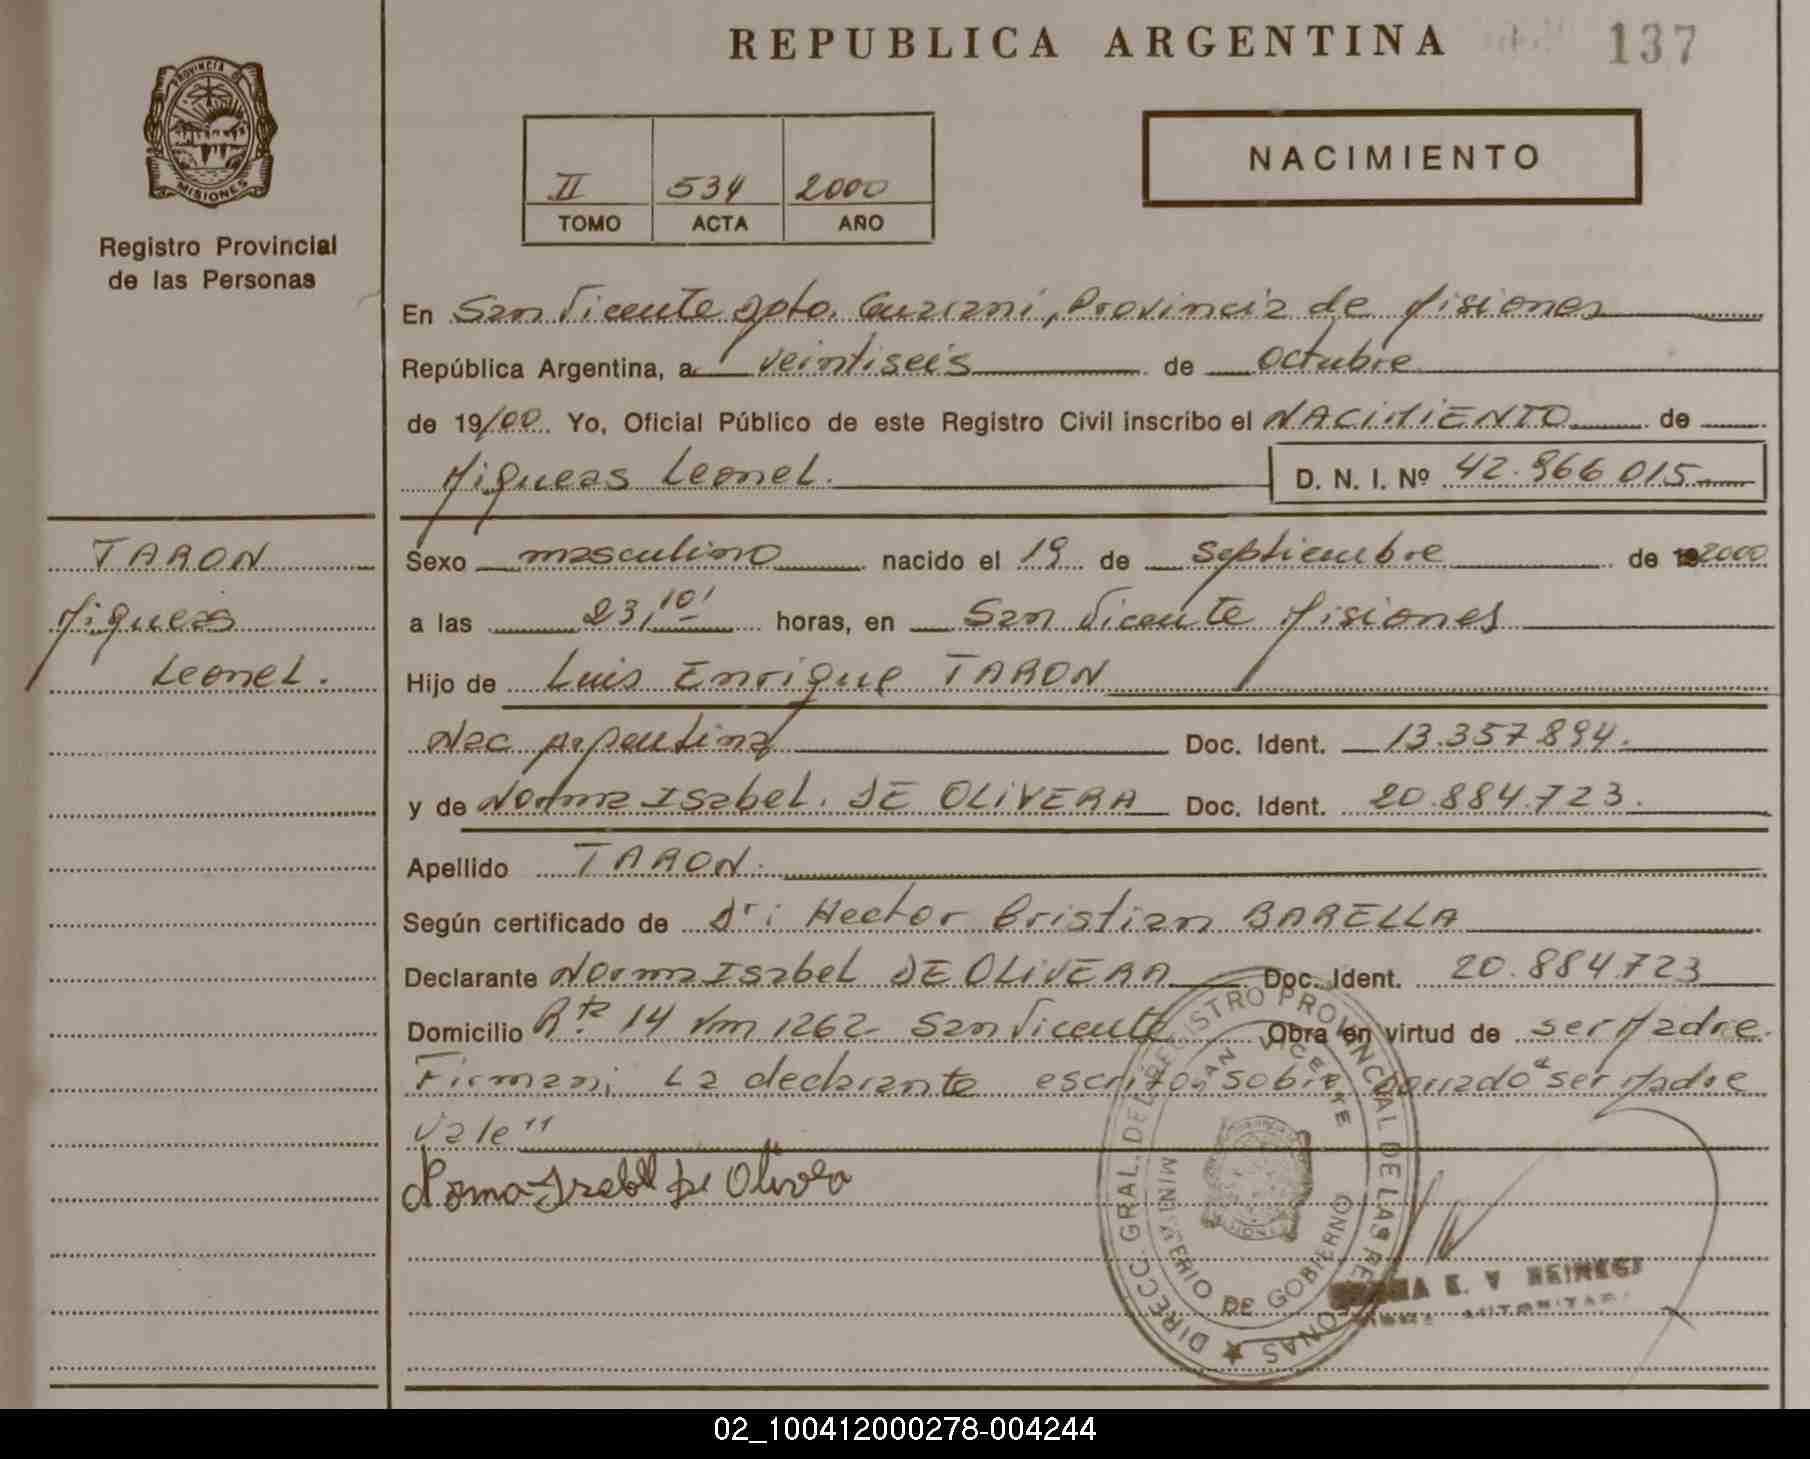 REPUBLICA ARGENTINA 137
PROVINCIA DE
MISIONES
Registro Provincial
de las Personas
NACIMIENTO
II 534 2000
TOMO ACTA AÑO
En San Vicente Dpto. Guarani, Provincia de Misiones
República Argentina, a veintiseis de octubre
de 19/00. Yo, Oficial Público de este Registro Civil inscribo el NACIMIENTO de
Miqueas Leonel. D. N. I. Nº 42.966.015
TARON
Miqueas
Leonel.
Sexo masculino nacido el 19 de septiembre de 2000
a las 23,10' horas, en San Vicente Misiones
Hijo de Luis Enrique TARON
Nac argentina Doc. Ident. 13.357.894.
y de Norma Isabel. DE OLIVERA Doc. Ident. 20.884.723.
Apellido TARON.
Según certificado de Dr: Hector Cristian BARELLA
Declarante Norma Isabel DE OLIVERA Doc. Ident. 20.884.723
Domicilio Rta 14 Km 1262 San Vicente Obra en virtud de ser Madre.
Firman: La declarante escrito sobre "ser Madre
Vale"
Norma Isabel De Olivera
DIRECC. GRAL. DEL REGISTRO PROVINCIAL DE LAS PERSONAS
SAN VICENTE
MINISTERIO DE GOBIERNO
E. V
02_100412000278-004244